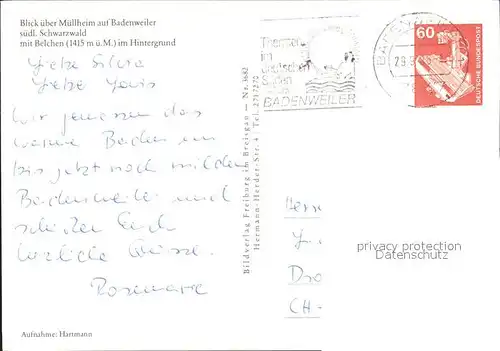 Blick über Müllheim auf Badenweiler
südl. Schwarzwald
mit Belchen (1415 m ü. M.) im Hintergrund
Liebe Silvia
Liebe
Wir geniessen das
warme Baden im
bis jetzt noch milden
Badenweiler und
schicken Euch
herzliche Grüsse.
Rosmarie
Aufnahme: Hartmann
Bildverlag Freiburg im Breisgau — Nr. 3682
Hermann-Herder-Str. 4 | Tel. 2717272
Thermen
im
Süden
BADENWEILER
60
DEUTSCHE BUNDESPOST
Herr
CH-
privacy protection
Datenschutz